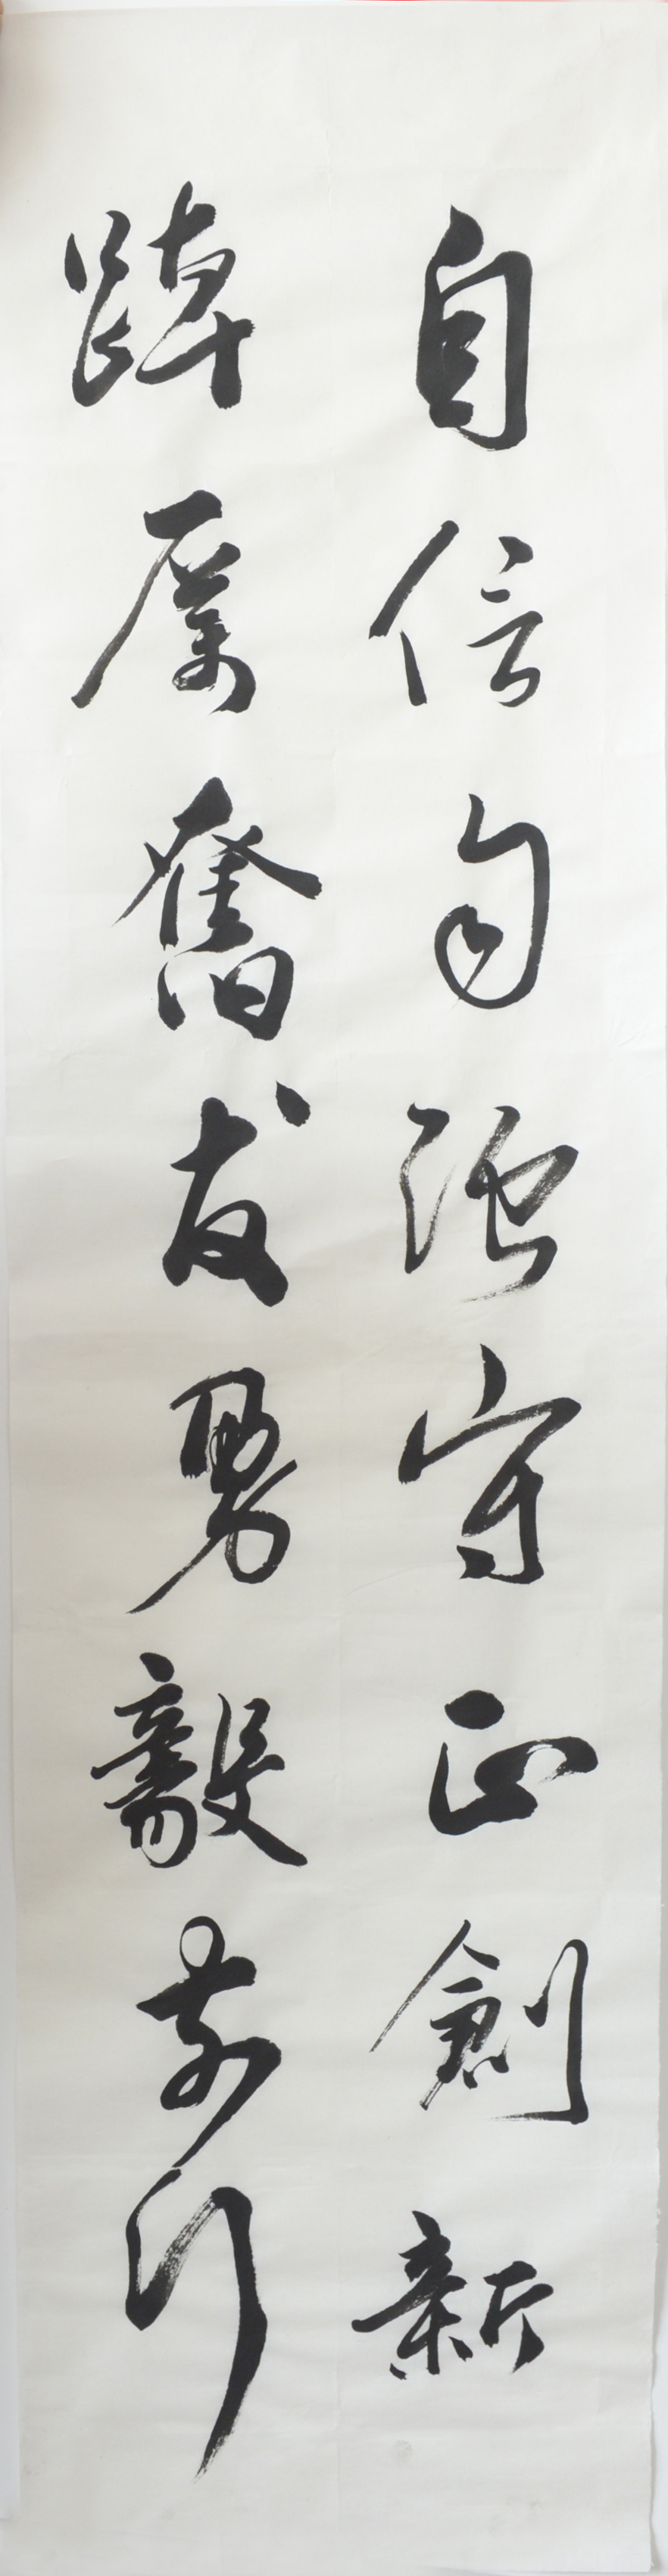 自信自强守正創新
踔厲奮发勇毅前行